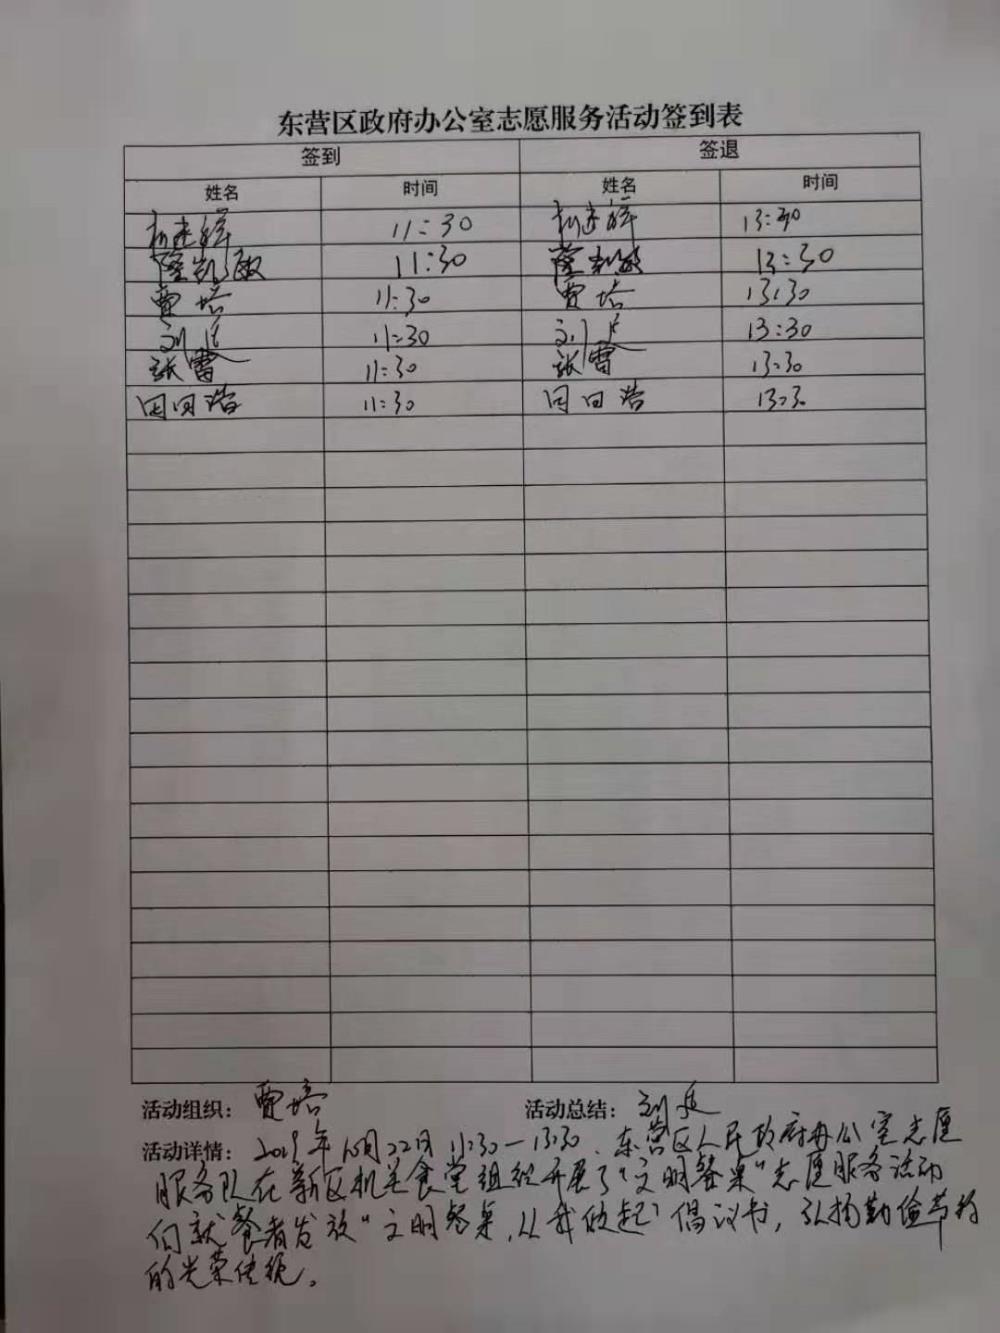 东营区政府办公室志愿服务活动签到表
签到 签退
姓名 时间 姓名 时间
11:30 13:30
11:30 13:30
贾培 11:30 贾培 13:30
刘 11:30 刘 13:30
张雷 11:30 张雷 13:30
浩 11:30 浩 13:30
活动组织：贾培 活动总结：刘
活动详情：2019年10月22日 11:30—13:30，东营区人民政府办公室志愿
服务队在新区机关食堂组织开展了“文明餐桌”志愿服务活动
向就餐者发放“文明餐桌，从我做起”倡议书，弘扬勤俭节约
的光荣传统。